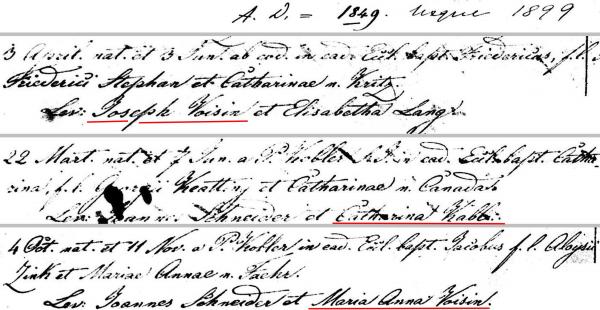 A. D. = 1849. usque 1899
3 April. nat. et 3 Jun. ab eod. in ead. Eccl. bapt. Friedericus, f. l.
Friederici Stephan et Catharinae n. Kritz
Lev: Joseph Voisin et Elisabetha Lang.
22 Mart. nat. et 7 Jun. a P. Kobler S.J. in ead. Eccl. bapt. Catha-
rina, f. l. Georgii et Catharinae n. Canada
Lev: Joannes Schneider et Catharina
4 Oct. nat. et 11 Nov. a P. Kobler in ead. Eccl. bapt. Jacobus f. l. Aloysii
Zink et Mariae Annae n. Faehr.
Lev: Joannes Schneider et Maria Anna Voisin.